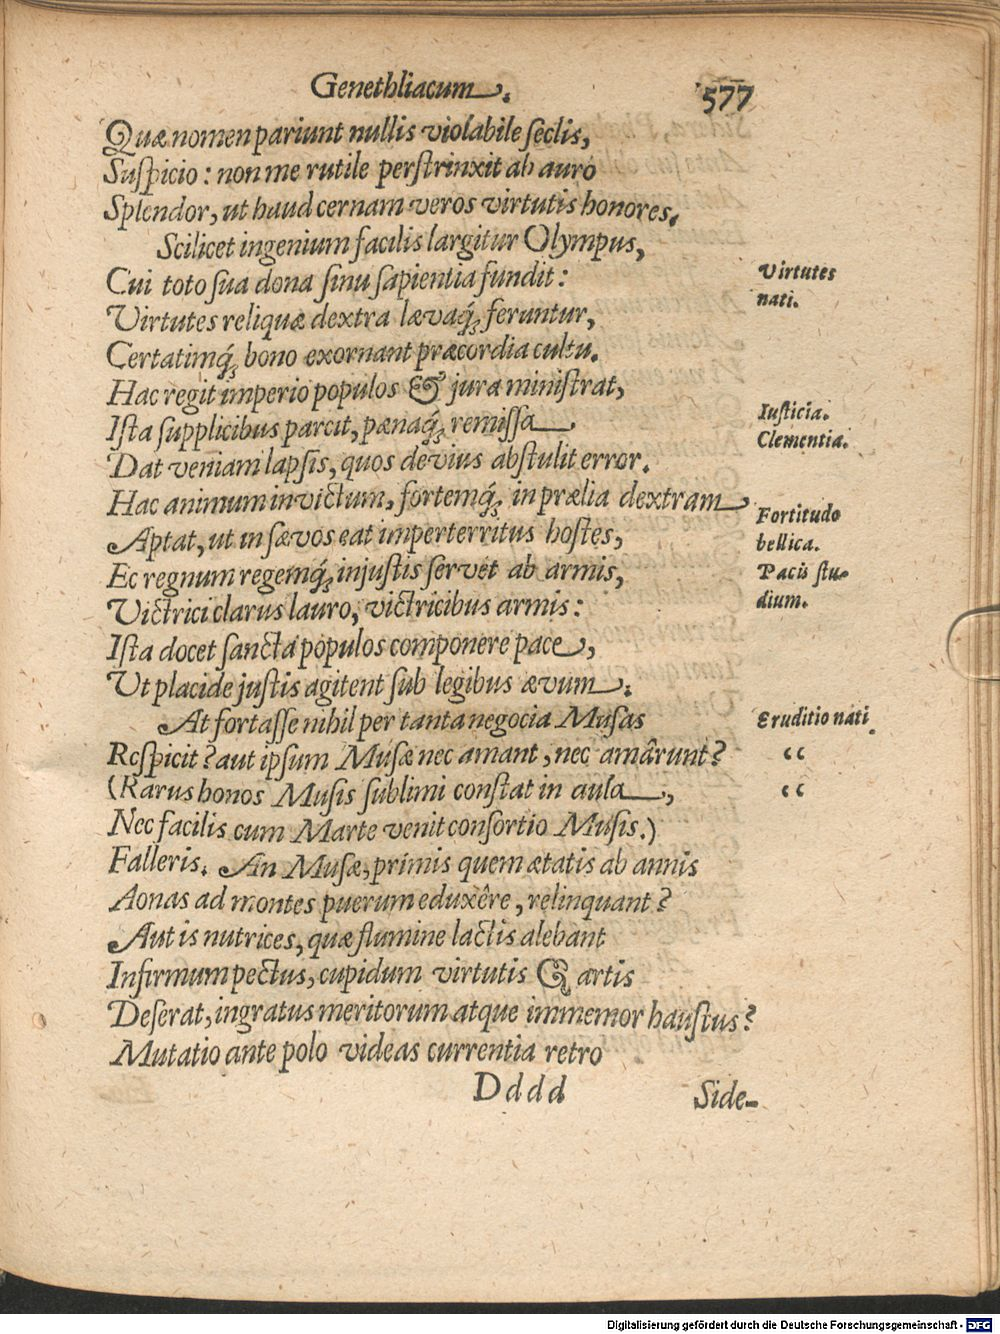 Genethliacum.
577
Quæ nomen pariunt nullis violabile seclis,
Suspicio: non me rutile perstrinxit ab auro
Splendor, ut haud cernam veros virtutis honores.
Scilicet ingenium facilis largitur Olympus,
Cui toto sua dona sinu sapientia fundit:
Virtutes
nati.
Virtutes reliquæ dextra lævaq́; feruntur,
Certatimq́; bono exornant præcordia cultu.
Hac regit imperio populos & jura ministrat,
Ista supplicibus parcit, pænaq́; remissa
Iusticia.
Clementia.
Dat veniam lapsis, quos devius abstulit error.
Hac animum invictum, fortemq́; in prælia dextram
Fortitudo
bellica.
Aptat, ut in sævos eat imperterritus hostes,
Ec regnum regemq́; injustis servet ab armis,
Pacis stu-
dium.
Victrici clarus lauro, victricibus armis:
Ista docet sanctâ populos componere pace,
Ut placide justis agitent sub legibus ævum.
At fortasse nihil per tanta negocia Musas
Eruditio nati.
Respicit? aut ipsum Musæ nec amant, nec amârunt?
“
(Rarus honos Musis sublimi constat in aula,
“
Nec facilis cum Marte venit consortio Musis.)
Falleris. An Musæ, primis quem ætatis ab annis
Aonas ad montes puerum eduxêre, relinquant?
Aut is nutrices, quæ flumine lactis alebant
Infirmum pectus, cupidum virtutis & artis
Deserat, ingratus meritorum atque immemor haustus?
Mutatio ante polo videas currentia retro
Dddd
Side-
Digitalisierung gefördert durch die Deutsche Forschungsgemeinschaft - DFG